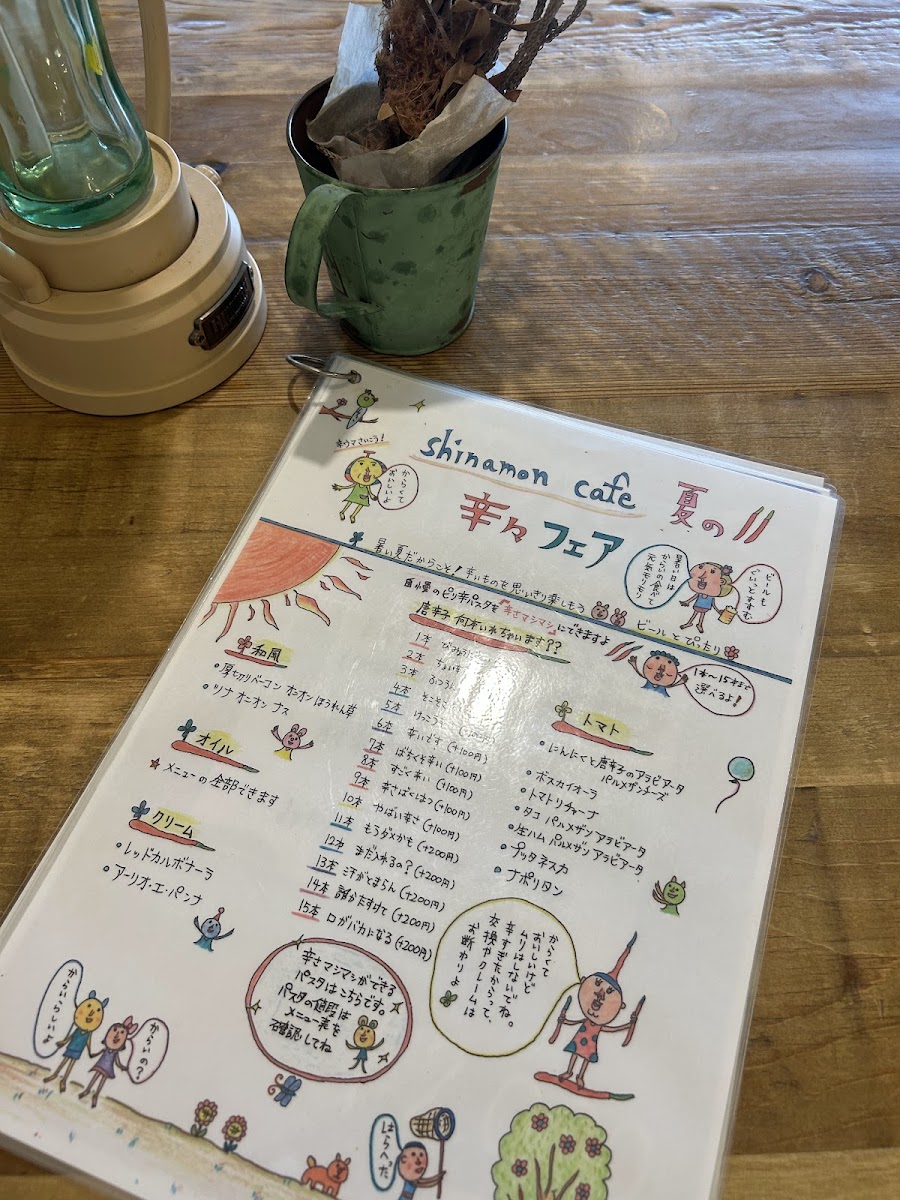 辛ウマさいこう!
からくて
おいしいよ
shinamon cafe
夏の
辛々フェア
暑い日は
からいの食べて
元気モリモリ
ビールも
ぐいっとすすむ
暑い夏だからこそ!辛いものを思いきり楽しもう
自慢のピリ辛パスタを"辛さマシマシ"にできますよ
ビールとぴったり
唐辛子何本いれちゃいます??
1本〜15本まで
選べるよ!
和風
・厚切りベーコン オニオン ほうれん草
・ツナ オニオン ナス
オイル
★メニューの全部できます
クリーム
・レッドカルボナーラ
・アーリオ・エ・パンナ
1本
2本
3本 ふつう
4本
5本
6本 辛いです(+100円)
7本 ばちくそ辛い(+100円)
8本 すごく辛い(+100円)
9本 辛さばくはつ(+100円)
10本 やばい辛さ(+100円)
11本 もうダメかも(+200円)
12本 まだ入れるの?(+200円)
13本 汗がとまらん(+200円)
14本 誰かたすけて(+200円)
15本 口がバカになる(+200円)
トマト
・にんにくと唐辛子のアラビアータ
パルメザンチーズ
・ボスカイオーラ
・トマトリチャーナ
・タコ パルメザンアラビアータ
・生ハム パルメザン アラビアータ
・プッタネスカ
・ナポリタン
辛さマシマシができる
パスタはこちらです。
パスタの値段は
メニュー表を
確認してね
からくて
おいしいけど
ムリはしないでね。
辛すぎたからって、
交換やクレームは
お断りよ
からいらしいよ
からいの?
はらへった